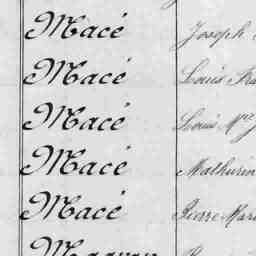 Macé Joseph
Macé Louis
Macé Louis M
Macé Mathurin
Macé Pierre Mari